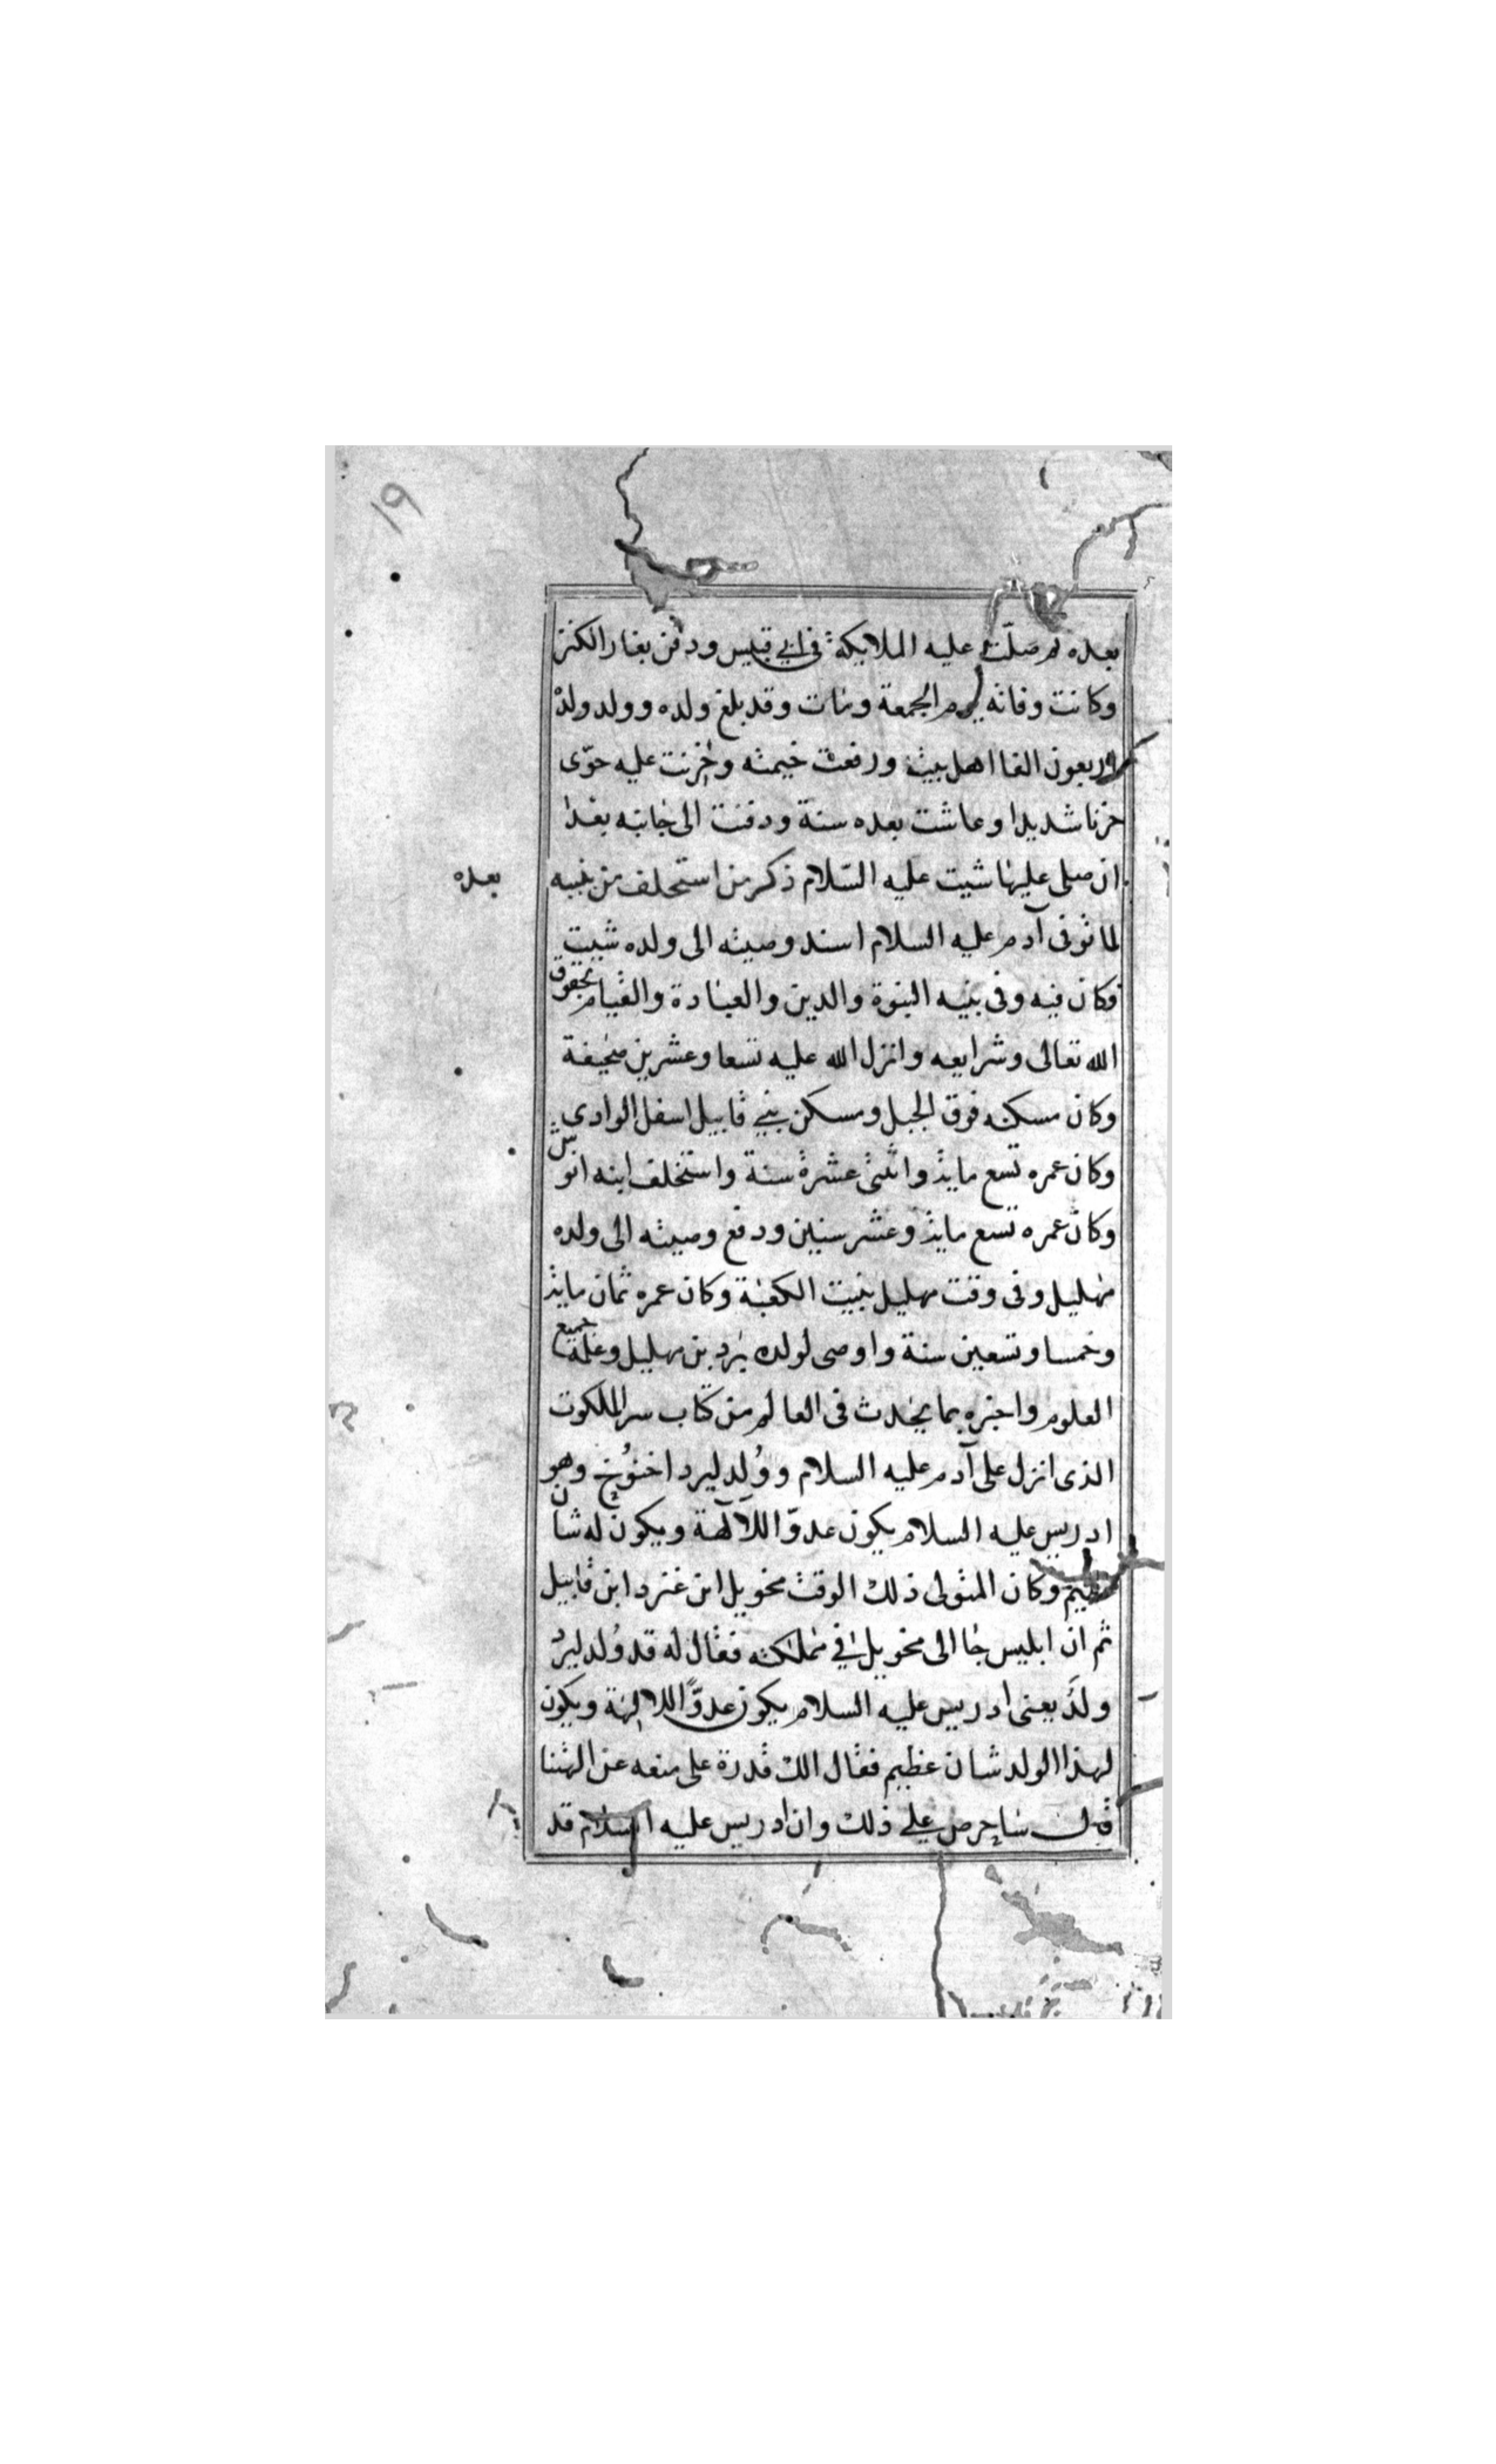 ١٩
بعده ثم صلّت عليه الملايكة فى ابى قبيس ودفن بغار الكنز
وكانت وفاته يوم الجمعة ومات وقد بلغ ولده وولد ولده
اربعون الفا اهل بيت ورفعت خيمته وحزنت عليه حوّى
حزنا شديدا وعاشت بعده سنة ودفنت الى جانبه بعدا
ان صلى عليها شيت عليه السّلام ذكر من استخلف من بنيه
بعده
لما توفى آدم عليه السلام اسند وصيته الى ولده شيت
وكان فيه وفى بنيه النبوة والدين والعبادة والقيام بحقوق
الله تعالى وشرايعه وانزل الله عليه تسعا وعشرين صحيفة
وكان مسكنه فوق الجبل ومسكن بنى قابيل اسفل الوادى
وكان عمره تسع ماية واثنى عشرة سنة واستخلف ابنه انوش
وكان عمره تسع ماية وعشر سنين ودفع وصيته الى ولده
مهليل وفى وقت مهليل بنيت الكعبة وكان عمره ثمان ماية
وخمسا وتسعين سنة واوصى لولده يرد بن مهليل وعلمه جميع
العلوم واخبره بما يحدث فى العالم من كتاب سر الملكوت
الذى انزل على آدم عليه السلام ووُلد ليرد اخنُوخ وهو
ادريس عليه السلام يكون عدوّا للآلهة ويكون له شان
عظيم وكان المتولى ذلك الوقت مخويل ابن عنرد ابن قابيل
ثم ان ابليس جا الى مخويل فى مملكته فقال له قد وُلد ليرد
ولدَ يعنى ادريس عليه السلام يكون عدوًّا للالهة ويكون
لهذا الولد شان عظيم فقال الك قدرة على منعه عن الهتنا
قال ساحرص على ذلك وان ادريس عليه السلام قد